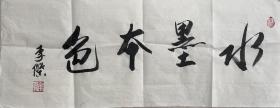 水墨本色
李傑